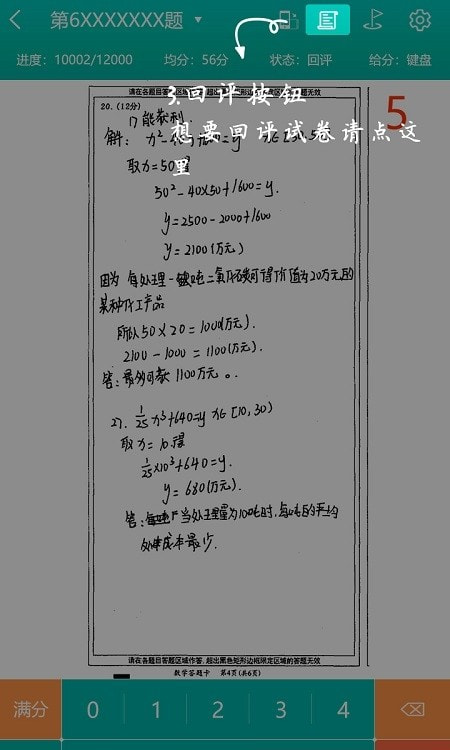 第6XXXXXXX题
进度：10002/12000 均分：56分 状态：回评 给分：键盘
请在各题目答题区域作答，超出黑色矩形边框限定区域的答题无效
3.回评按钮
想要回评试卷请点这里
5
20. (12分)
① 能获利.
解：
取x=50得
50²-40×50+1600=y.
y=2500-2000+1600
y=2100(万元)
因为 每处理一吨二氧化碳可得价值为20万元的
某种化工产品
所以 50×20=1000(万元).
2100-1000=1100(万元).
答：最多可获1100万元。
27. 1/25 x³+640=y x∈[10,30)
取x=10.得
1/25×10³+640=y.
y=680(万元).
答：当处理量为10吨时，每吨的平均
处理成本最少.
请在各题目答题区域作答，超出黑色矩形边框限定区域的答题无效
数学答题卡 第4页(共6页)
满分 0 1 2 3 4